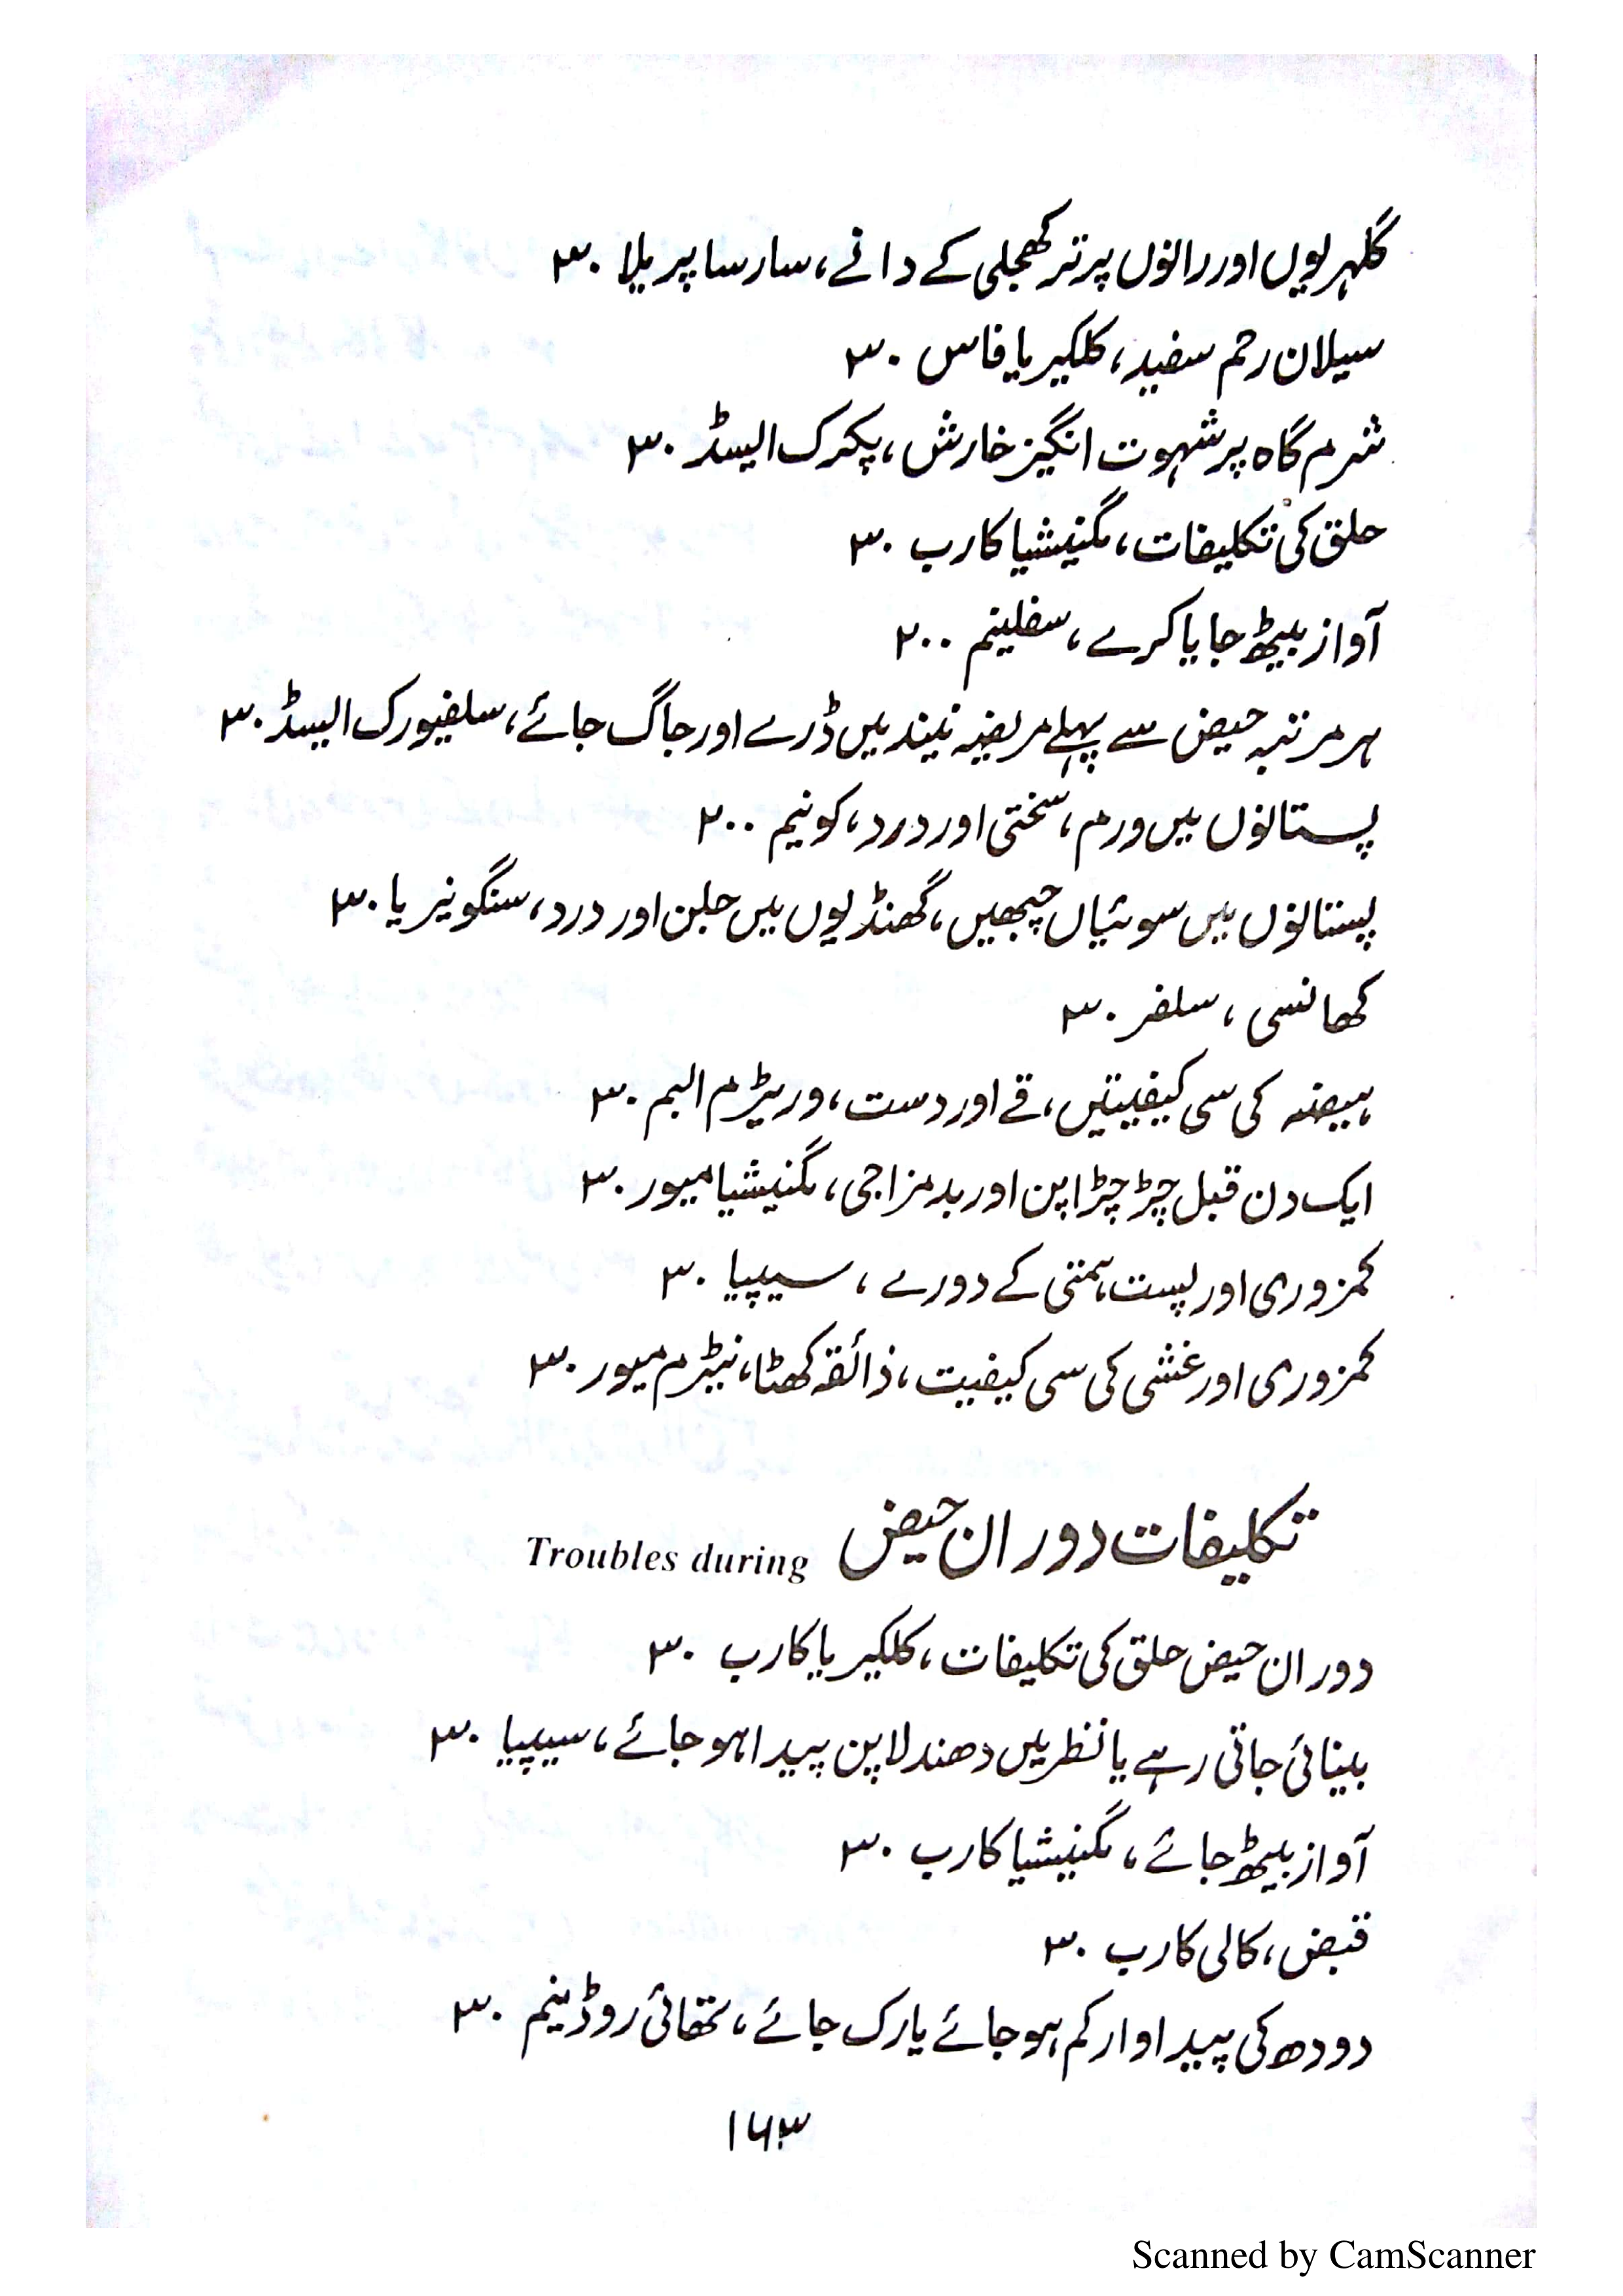 گلہریوں اور رانوں پر تر کھجلی کے دانے، سارسا پریلا ۳۰
سیلان رحم سفید، کلکیریا فاس ۳۰
شرم گاہ پر شہوت انگیز خارش، پکرک ایسڈ ۳۰
حلق کی تکلیفات، مگنیشیا کارب ۳۰
آواز بیٹھ جایا کرے، سفلینم ۲۰۰
ہر مرتبہ حیض سے پہلے مریضہ نیند میں ڈرے اور جاگ جائے، سلفیورک ایسڈ ۳۰
پستانوں میں ورم، سختی اور درد، کونیم ۲۰۰
پستانوں میں سوئیاں چبھیں، گھنڈیوں میں جلن اور درد، سنگونیریا ۳۰
کھانسی، سلفر ۳۰
ہیضہ کی سی کیفیتیں، قے اور دست، وریٹرم البم ۳۰
ایک دن قبل چڑچڑاپن اور بدمزاجی، مگنیشیا میور ۳۰
کمزوری اور پست ہمتی کے دورے، سیپیا ۳۰
کمزوری اور غشی کی سی کیفیت، ذائقہ کھٹا، نیٹرم میور ۳۰
تکلیفات دوران حیض Troubles during
دوران حیض حلق کی تکلیفات، کلکیریا کارب ۳۰
بینائی جاتی رہے یا نظر میں دھندلا پن پیدا ہو جائے، سیپیا ۳۰
آواز بیٹھ جائے، مگنیشیا کارب ۳۰
قبض، کالی کارب ۳۰
دودھ کی پیداوار کم ہو جائے یا رک جائے، تھائی روڈینم ۳۰
۱۶۳
Scanned by CamScanner